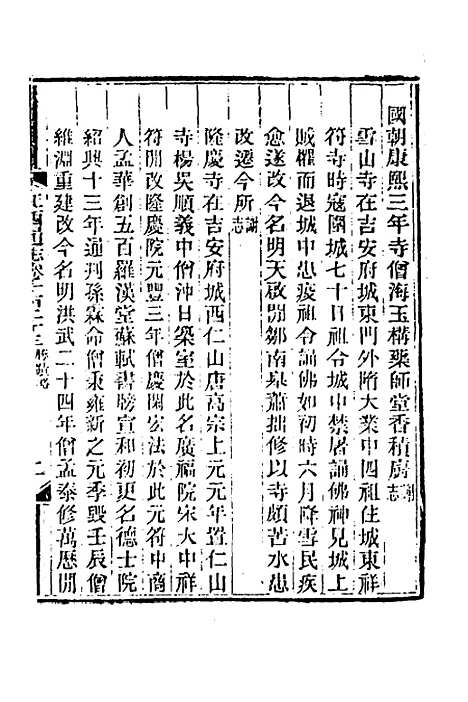 國朝康熙三年寺僧海玉構藥師堂香積廚志
雪山寺在吉安府城東門外隋大業中四祖住城東祥
符寺時寇圍城七十日祖令城中禁屠誦佛神見城上
賊懼而退城中患疫祖令誦佛如初時六月降雪民疾
愈遂改今名明天啟間鄒南臯蕭拙修以寺頗苦水患
改遷今所謝志
隆慶寺在吉安府城西仁山唐高宗上元元年置仁山
寺楊吳順義中僧沖日築室於此名廣福院宋大中祥
符間改隆慶院元豐三年僧慶閑宏法於此元符中商
人孟華創五百羅漢堂蘇軾書牓宣和初更名德士院
紹興十三年通判孫霖命僧秉雍新之元季毀壬辰僧
維淵重建改今名明洪武二十四年僧孟泰修萬歷間
江西通志卷一百二十三勝蹟略